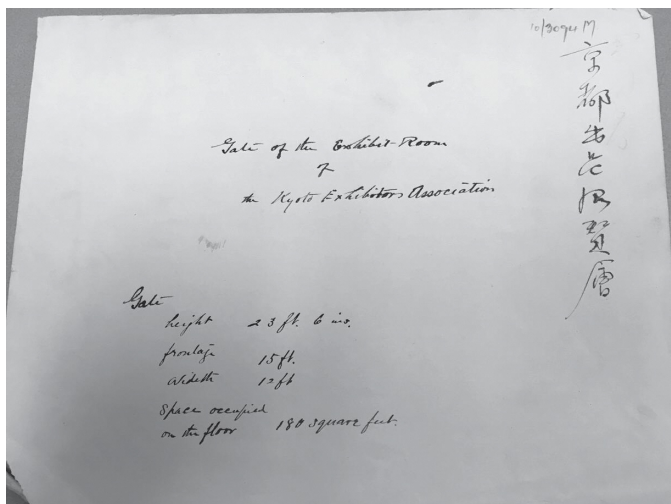 10/3094 M
京都出品協賛會
Gate of the Exhibit-Room
of
the Kyoto Exhibitors Association
Gate
height 23 ft. 6 ins.
frontage 15 ft.
width 12 ft
Space occupied
on the floor 180 square feet.